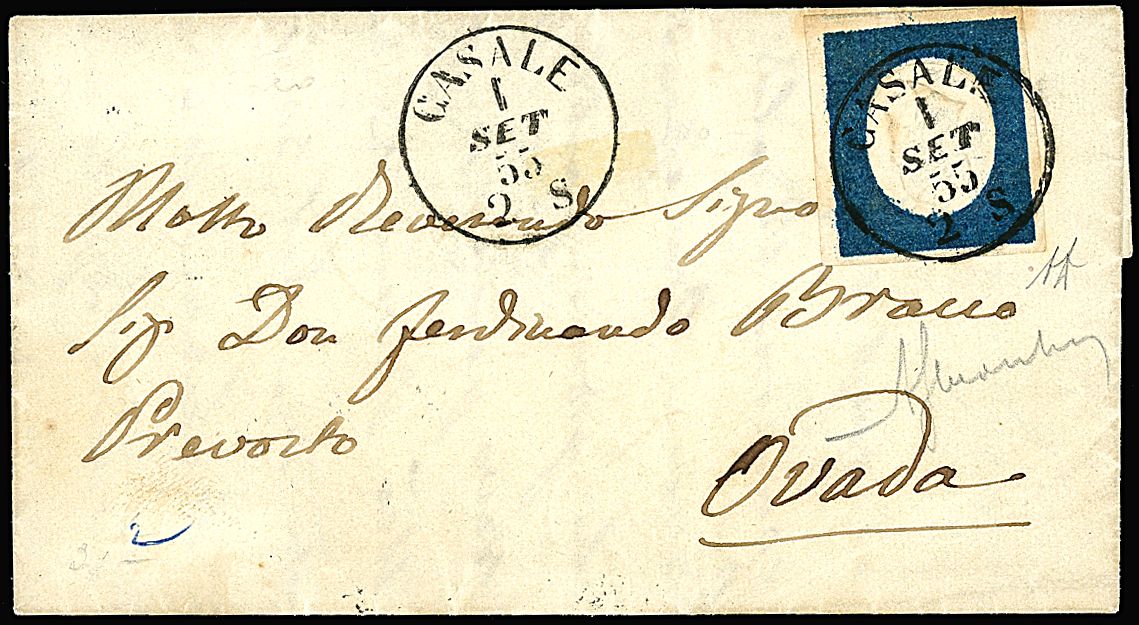 CASALE
1
SET
55
2 S
CASALE
1
SET
55
2 S
Molto Reverendo Signo
Sig Don Ferdinando Bracco
Prevosto
Ovada
2